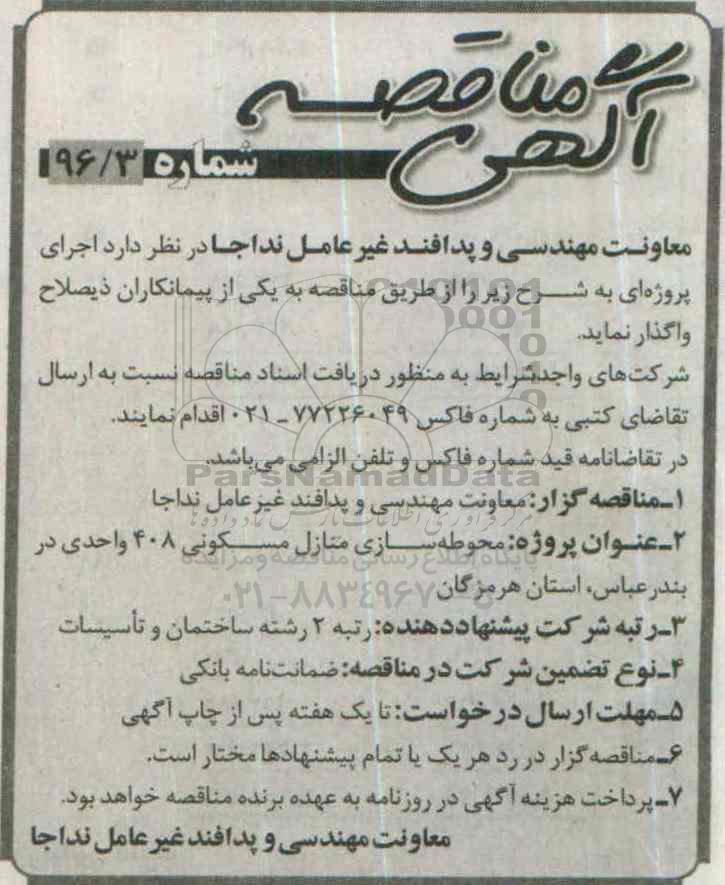 آگهی مناقصه
شماره ۹۶/۳
معاونت مهندسی و پدافند غیر عامل نداجا در نظر دارد اجرای
پروژه‌ای به شرح زیر را از طریق مناقصه به یکی از پیمانکاران ذیصلاح
واگذار نماید.
شرکت‌های واجدشرایط به منظور دریافت اسناد مناقصه نسبت به ارسال
تقاضای کتبی به شماره فاکس ۷۷۲۲۶۰۴۹ ـ ۰۲۱ اقدام نمایند.
در تقاضانامه قید شماره فاکس و تلفن الزامی می‌باشد.
ParsNamadData
۱ـمناقصه گزار: معاونت مهندسی و پدافند غیرعامل نداجا
مرکز فرآوری اطلاعات پارس نماد داده ها
۲ـعنوان پروژه: محوطه‌سازی منازل مسکونی ۴۰۸ واحدی در
پایگاه اطلاع رسانی مناقصه و مزایده
بندرعباس، استان هرمزگان
۰۲۱-۸۸۳۴۹۶۷۰-۵
۳ـرتبه شرکت پیشنهاددهنده: رتبه ۲ رشته ساختمان و تأسیسات
۴ـنوع تضمین شرکت در مناقصه: ضمانت‌نامه بانکی
۵ـمهلت ارسال درخواست: تا یک هفته پس از چاپ آگهی
۶ـمناقصه‌گزار در رد هر یک یا تمام پیشنهادها مختار است.
۷ـپرداخت هزینه آگهی در روزنامه به عهده برنده مناقصه خواهد بود.
معاونت مهندسی و پدافند غیر عامل نداجا